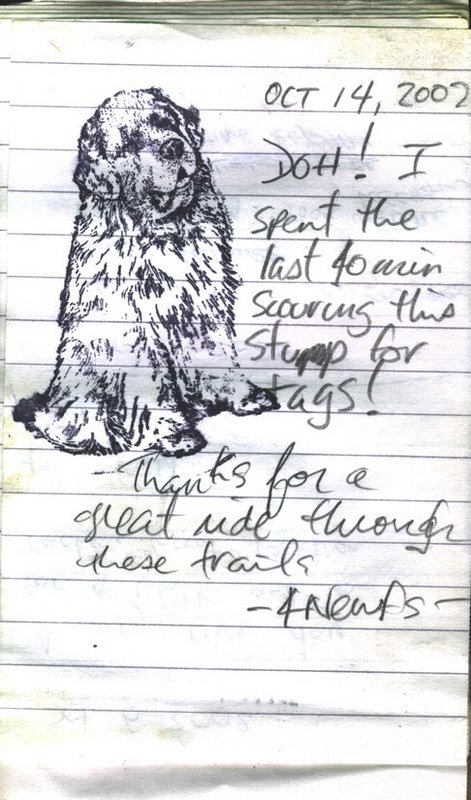 OCT 14, 2002
DOH! I
spent the
last 40 min
scouring this
stump for
tags!
Thanks for a
great ride through
these trails
- 4Newfs -